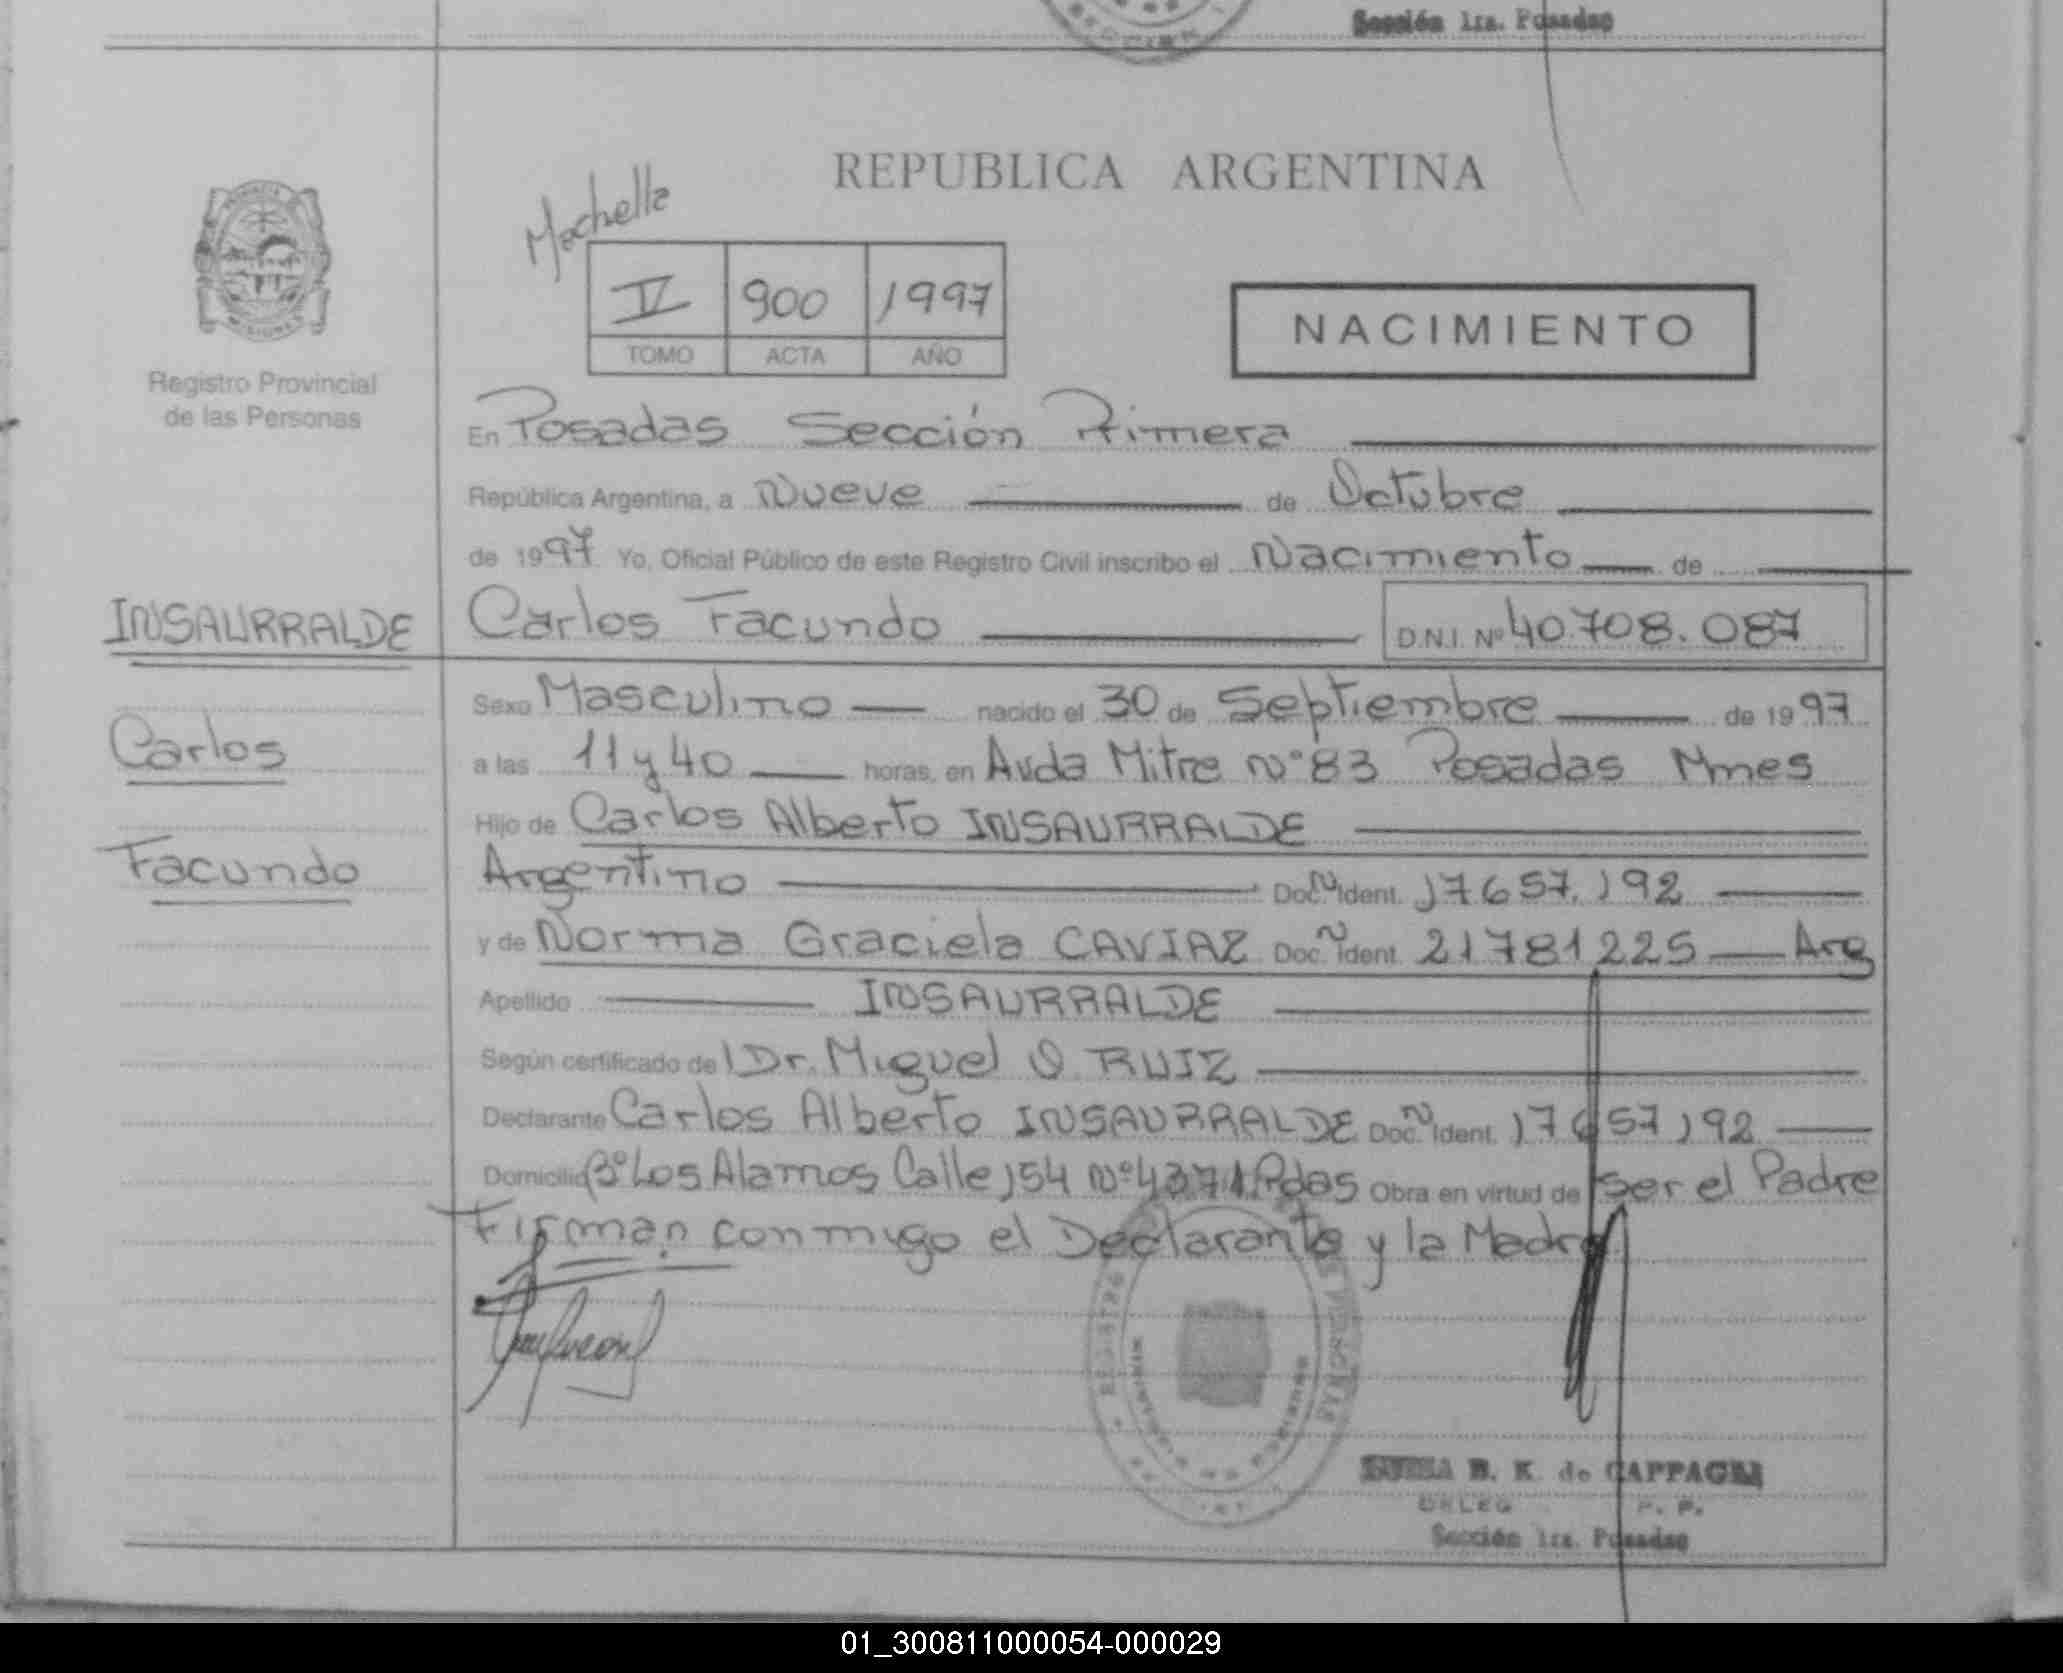 Sección 1ra. Posadas
REPUBLICA ARGENTINA
IV 900 1997
TOMO ACTA AÑO
NACIMIENTO
Registro Provincial
de las Personas
En Posadas Sección Primera
República Argentina, a Nueve de Octubre
de 1997 Yo, Oficial Público de este Registro Civil inscribo el Nacimiento de
INSAURRALDE Carlos Facundo D.N.I. Nº 40.708.087
Sexo Masculino nacido el 30 de Septiembre de 1997
Carlos
a las 11 y 40 horas, en Avda Mitre Nº 83 Posadas Mnes
Hijo de Carlos Alberto INSAURRALDE
Facundo
Argentino Doc. N Ident. 17657.192
y de Norma Graciela CAVIAZ Doc. N Ident. 21781225 Arg
Apellido INSAURRALDE
Según certificado del Dr. Miguel O. RUIZ
Declarante Carlos Alberto INSAURRALDE Doc. N Ident. 17657192
Domicilio Bº Los Alamos Calle 154 Nº 4371 Pdas Obra en virtud de ser el Padre
Firman conmigo el Declarante y la Madre
B. K. de CAPPAGLI
DELEG R. P.
Sección 1ra. Posadas
01_300811000054-000029